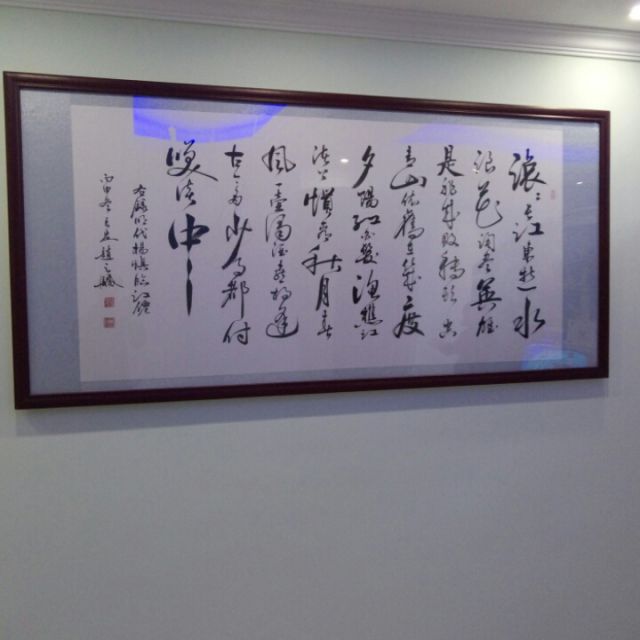 滚滚长江东逝水
浪花淘尽英雄
是非成败转头空
青山依旧在几度
夕阳红白发渔樵江
渚上惯看秋月春
风一壶浊酒喜相逢
古今多少事都付
笑谈中
右录明代杨慎临江仙
丙申冬